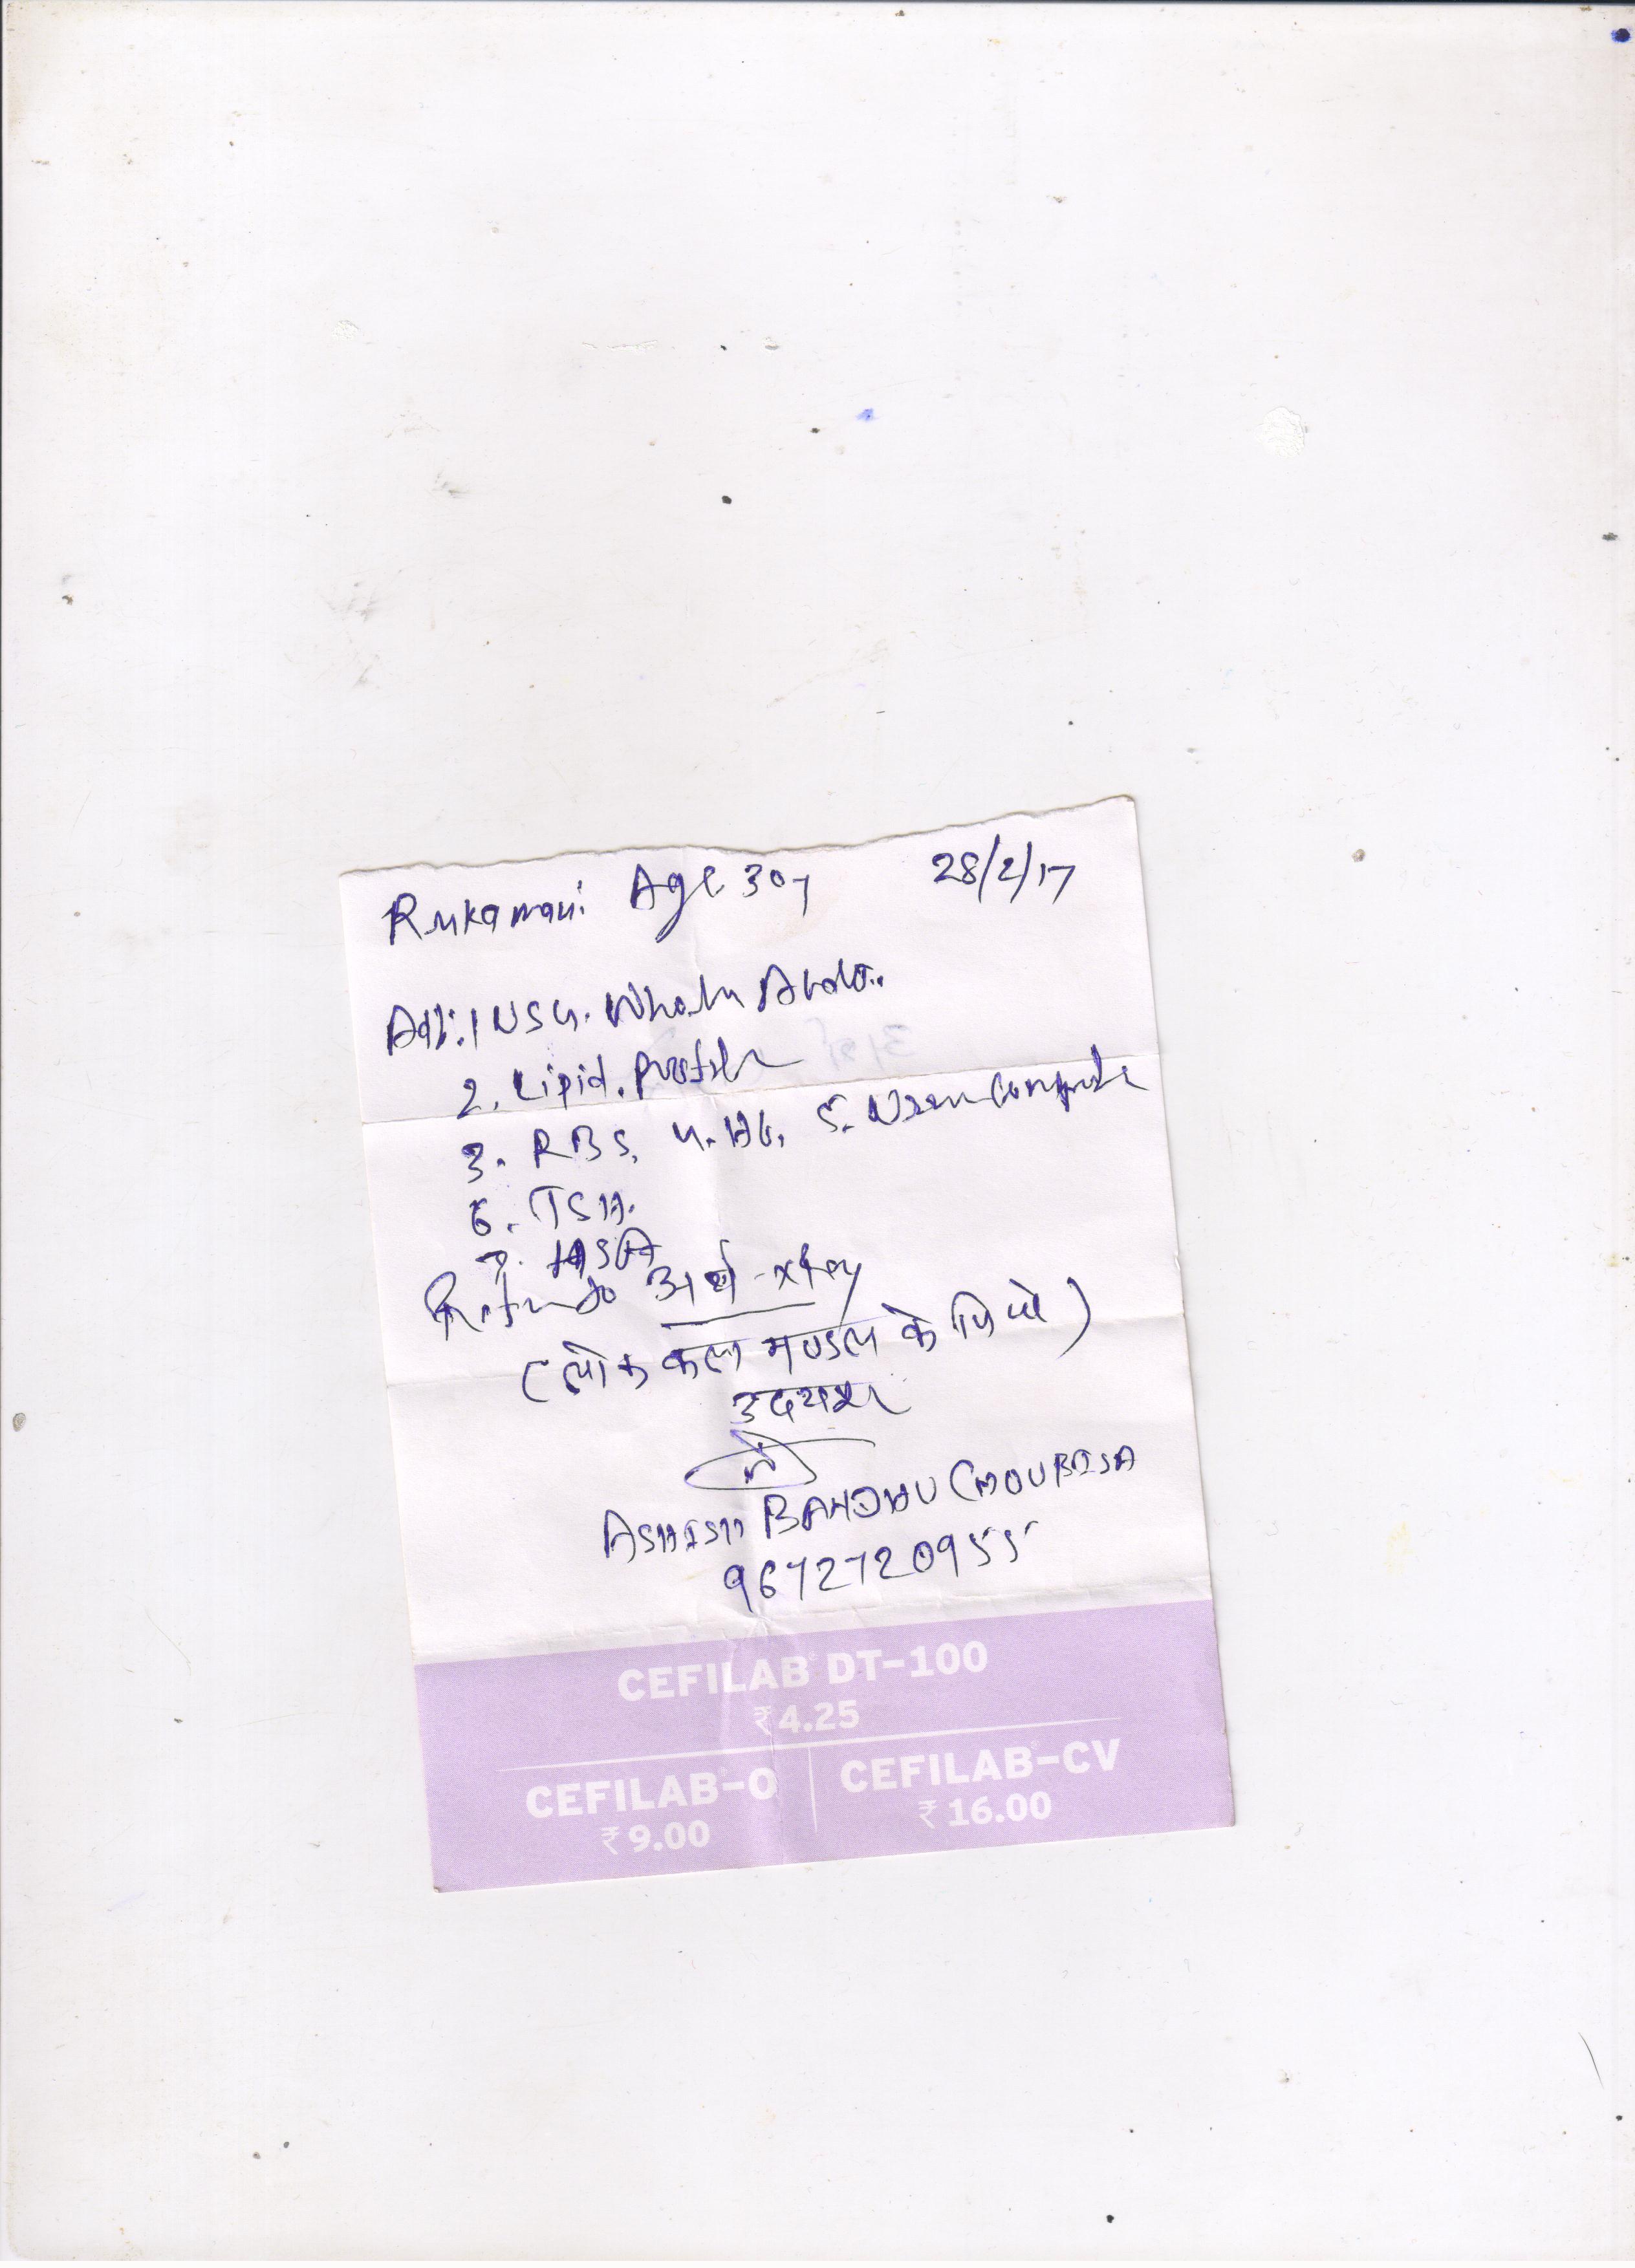 Rukamani Age 30y 28/2/17
Adv. 1 USG. Whole Abdo..
2. Lipid. Profile
3. RBS, 4. Hb, 5. Urine Complete
6. TSH.
7.
Refer to अर्थ -xray
(लोक कला मण्डल के पिछे)
उदयपुर
ASHISH BANDHU CHOUBISA
9672720955
CEFILAB DT-100
₹ 4.25
CEFILAB-O CEFILAB-CV
₹ 9.00 ₹ 16.00